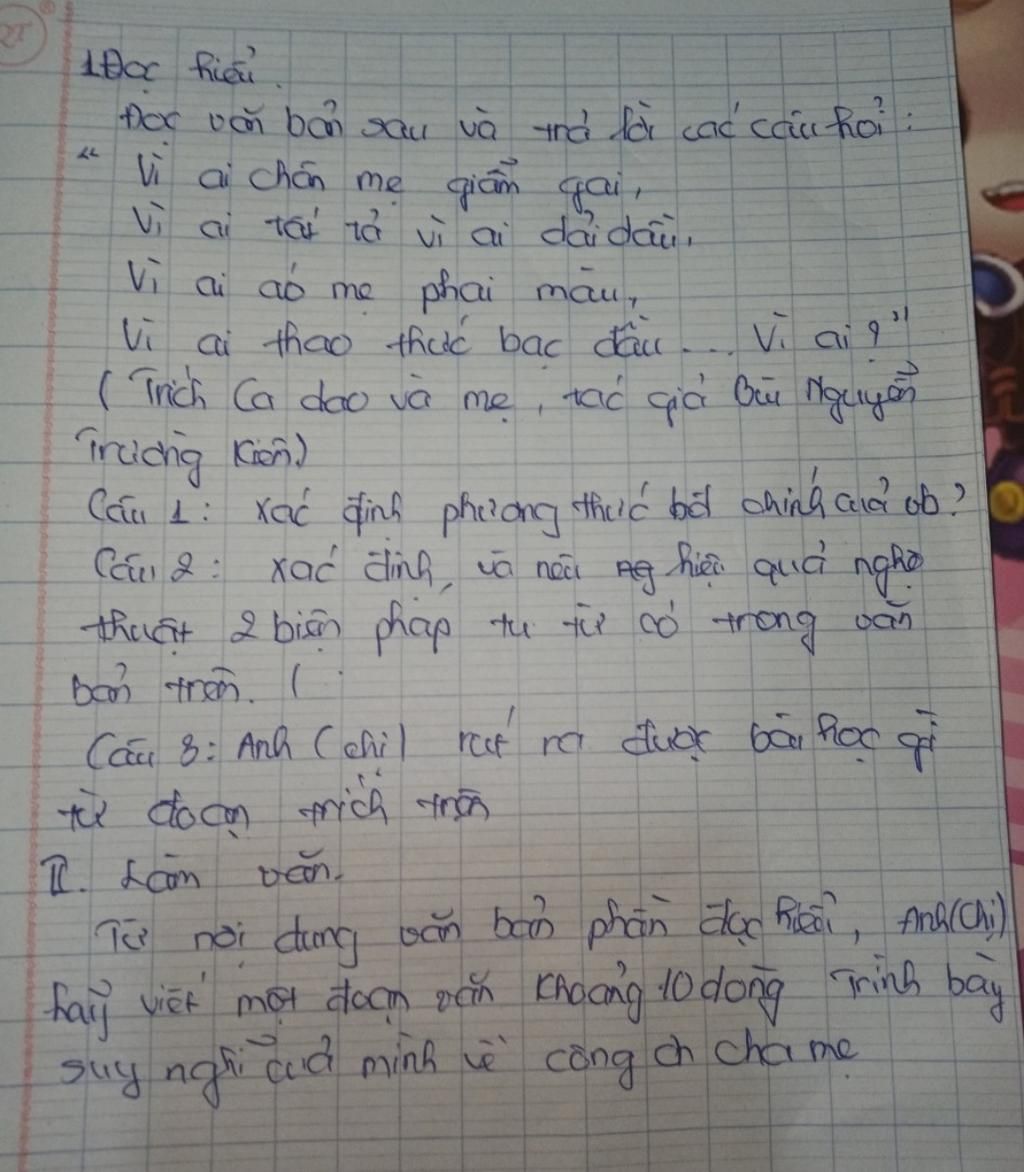 1 Đọc hiểu.
Đọc văn bản sau và trả lời các câu hỏi:
“ Vì ai chân mẹ giẫm gai,
Vì ai tất tả vì ai dãi dầu,
Vì ai áo mẹ phai màu,
Vì ai thao thức bạc đầu... Vì ai?”
( Trích Ca dao và mẹ, tác giả Đỗ Nguyễn
Trường Kiên)
Câu 1: xác định phương thức bđ chính của vb?
Câu 2: xác định, và nêu hiệu quả nghệ
thuật 2 biện pháp tu từ có trong văn
bản trên. (
Câu 3: Anh (chị) rút ra được bài học gì
từ đoạn trích trên
II. Làm văn.
Từ nội dung văn bản phần đọc hiểu, Anh(Chị)
hãy viết một đoạn văn khoảng 10 dòng Trình bày
suy nghĩ của mình về công ơn cha mẹ